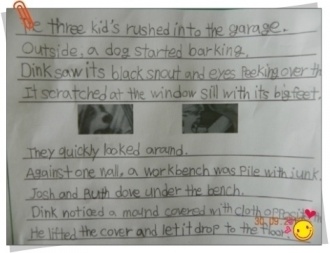 he three kid's rushed into the garage.
Outside, a dog started barking.
Dink saw its black snout and eyes peeking over th
It scratched at the window sill with its big feet.
They quickly looked around.
Against one wall, a workbench was Pile with junk.
Josh and Ruth dove under the bench.
Dink noticed a mound covered with cloth
He lifted the cover and let it drop to the floor.